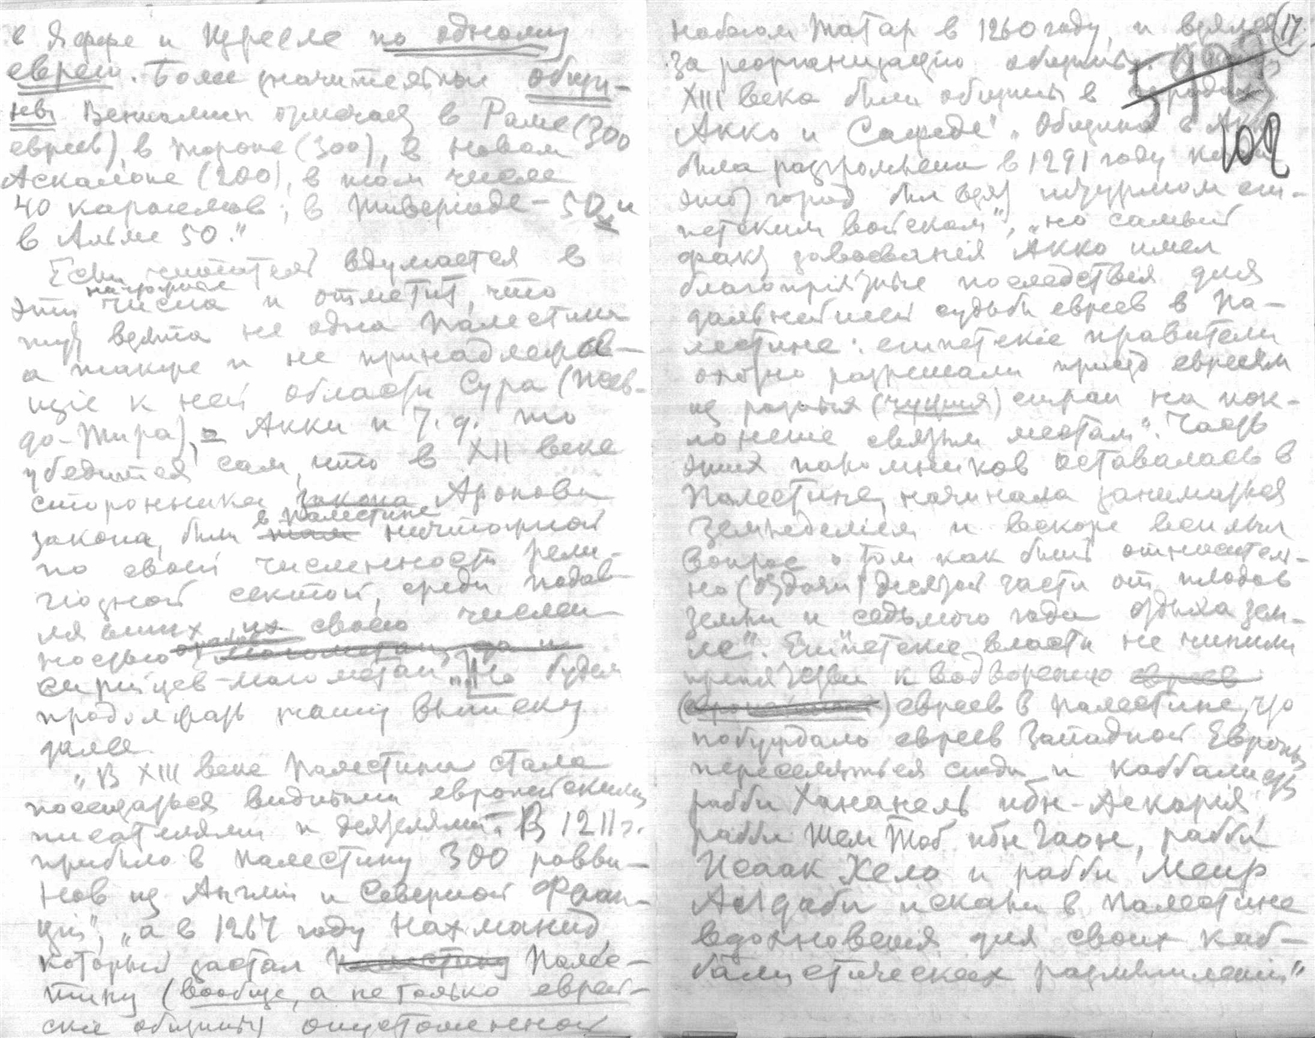 в Яффе и Изрееле по одному
еврею. Более значительные общи-
ны Вениамин отмечает в Раме (300
евреев), в Тороне (300), в Новом
Аскалоне (200), в том числе
40 караимов; в Тивериаде – 50 и
в Альме 50."
Если читатель вдумается в
эти числа и отметит, что
тут взята не одна Палестина
а также и не принадлежав-
щіе к ней области Сура (Псев-
до-Тира), Акки и т.д. то
убедится сам, что в XII веке
сторонники закона Аронова
закона, были в Палестине ничтожной
по своей численности рели-
гіозной сектой, среди подав-
лявших их своею числен-
ностью арабов
сирійцев-магометан. Но будем
продолжать нашу выписку
далее.
"В XIII веке Палестина стала
посещаться видными европейскими
писателями и деятелями. В 1211 г.
прибыло в Палестину 300 равви-
нов из Англіи и Северной Фран-
ціи", "а в 1267 году Нахманид
который застал Палестину Палес-
тину (вообще, а не только еврей-
скіе общины) опустошенной
набегом Татар в 1260 году, и взялся
за реорганизацію общины
XIII века были общины в городах
Акко и Сафеде". "Община в Акко
была разгромлена в 1291 году когда
этот город был взят штурмом еги-
петским войском", "но самый
факт завоеванія Акко имел
благопріятные последствія для
дальнейшей судьбы евреев в Па-
лестине: египетскіе правители
охотно разрешали приезд евреям
из разных (чужих) стран на пок-
лоненіе святым местам". Часть
этих паломников оставалась в
Палестине, начинала заниматься
земледеліем и вскоре всплыл
вопрос о том как быть относитель-
но (отдачи) десятой части от плодов
земли и седьмого года отдыха зем-
ле". Египетскіе власти не чинили
препятствій к водворенію евреев
евреев в Палестине, что
побуждало евреев Западной Европы
переселяться сюда и каббалисты
рабби Хананель ибн-Аскара,
рабби Шем Тоб ибн Гаон, рабби
Исаак Хело и рабби Меир
Алдаби искали в Палестине
вдохновенія для своих каб-
балистических размышленій"
17
102